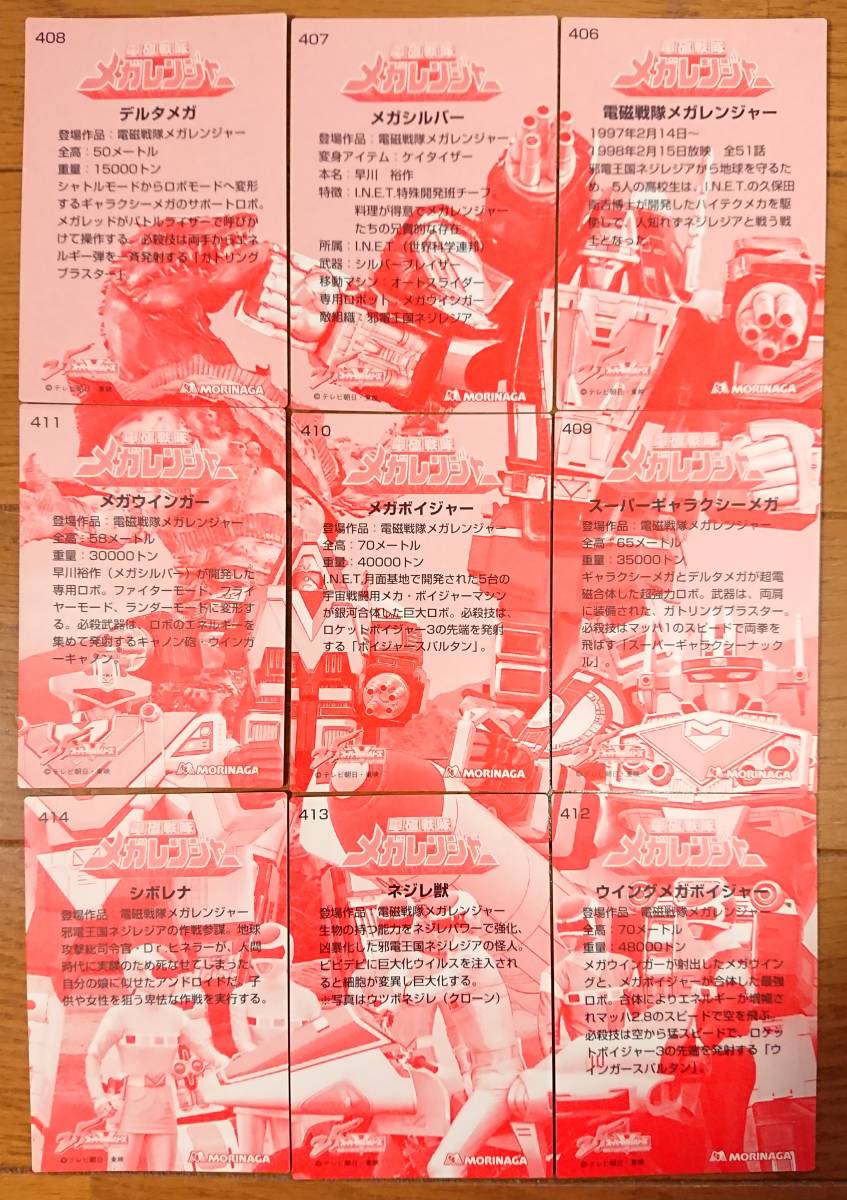 408
電磁戦隊
メガレンジャー
デルタメガ
登場作品：電磁戦隊メガレンジャー
全高：50メートル
重量：15000トン
シャトルモードからロボモードへ変形
するギャラクシーメガのサポートロボ。
メガレッドがバトルライザーで呼びか
けて操作する。必殺技は両手からエネ
ルギー弾を一斉発射する「ガトリング
ブラスター」
スーパー戦隊シリーズ
©テレビ朝日・東映
MORINAGA
407
電磁戦隊
メガレンジャー
メガシルバー
登場作品：電磁戦隊メガレンジャー
変身アイテム：ケイタイザー
本名：早川　裕作
特徴：I.N.E.T.特殊開発班チーフ。
料理が得意でメガレンジャー
たちの兄貴的な存在
所属：I.N.E.T.（世界科学連邦）
武器：シルバーブレイザー
移動マシン：オートスライダー
専用ロボット：メガウインガー
敵組織：邪電王国ネジレジア
©テレビ朝日・東映
MORINAGA
406
電磁戦隊
メガレンジャー
電磁戦隊メガレンジャー
1997年2月14日〜
1998年2月15日放映　全51話
邪電王国ネジレジアから地球を守るた
め、5人の高校生は、I.N.E.T.の久保田
衛吉博士が開発したハイテクメカを駆
使して、人知れずネジレジアと戦う戦
士となった。
スーパー戦隊シリーズ
©テレビ朝日・東映
MORINAGA
411
電磁戦隊
メガレンジャー
メガウインガー
登場作品：電磁戦隊メガレンジャー
全高：58メートル
重量：30000トン
早川裕作（メガシルバー）が開発した
専用ロボ。ファイターモード、フライ
ヤーモード、ランダーモードに変形す
る。必殺武器は、ロボのエネルギーを
集めて発射するキャノン砲・ウインガ
ーキャノン。
スーパー戦隊シリーズ
©テレビ朝日・東映
MORINAGA
410
電磁戦隊
メガレンジャー
メガボイジャー
登場作品：電磁戦隊メガレンジャー
全高：70メートル
重量：40000トン
I.N.E.T.月面基地で開発された5台の
宇宙戦闘用メカ・ボイジャーマシン
が銀河合体した巨大ロボ。必殺技は、
ロケットボイジャー3の先端を発射
する「ボイジャースパルタン」。
スーパー戦隊シリーズ
©テレビ朝日・東映
MORINAGA
409
電磁戦隊
メガレンジャー
スーパーギャラクシーメガ
登場作品：電磁戦隊メガレンジャー
全高：65メートル
重量：35000トン
ギャラクシーメガとデルタメガが超電
磁合体した超強力ロボ。武器は、両肩
に装備された、ガトリングブラスター。
必殺技はマッハ1のスピードで両拳を
飛ばす「スーパーギャラクシーナック
ル」。
スーパー戦隊シリーズ
©テレビ朝日・東映
MORINAGA
414
電磁戦隊
メガレンジャー
シボレナ
登場作品　電磁戦隊メガレンジャー
邪電王国ネジレジアの作戦参謀。地球
攻撃総司令官・Dr.ヒネラーが、人間
時代に実験のため死なせてしまった、
自分の娘に似せたアンドロイドだ。子
供や女性を狙う卑怯な作戦を実行する。
スーパー戦隊シリーズ
©テレビ朝日・東映
MORINAGA
413
電磁戦隊
メガレンジャー
ネジレ獣
登場作品：電磁戦隊メガレンジャー
生物の持つ能力をネジレパワーで強化、
凶暴化した邪電王国ネジレジアの怪人。
ビビデビに巨大化ウイルスを注入され
ると細胞が変異し巨大化する。
※写真はウツボネジレ（クローン）
スーパー戦隊シリーズ
©テレビ朝日・東映
MORINAGA
412
電磁戦隊
メガレンジャー
ウイングメガボイジャー
登場作品：電磁戦隊メガレンジャー
全高：70メートル
重量：48000トン
メガウインガーが射出したメガウイン
グと、メガボイジャーが合体した最強
ロボ。合体によりエネルギーが増幅さ
れマッハ2.8のスピードで空を飛ぶ。
必殺技は空から猛スピードで、ロケッ
トボイジャー3の先端を発射する「ウ
インガースパルタン」。
スーパー戦隊シリーズ
©テレビ朝日・東映
MORINAGA